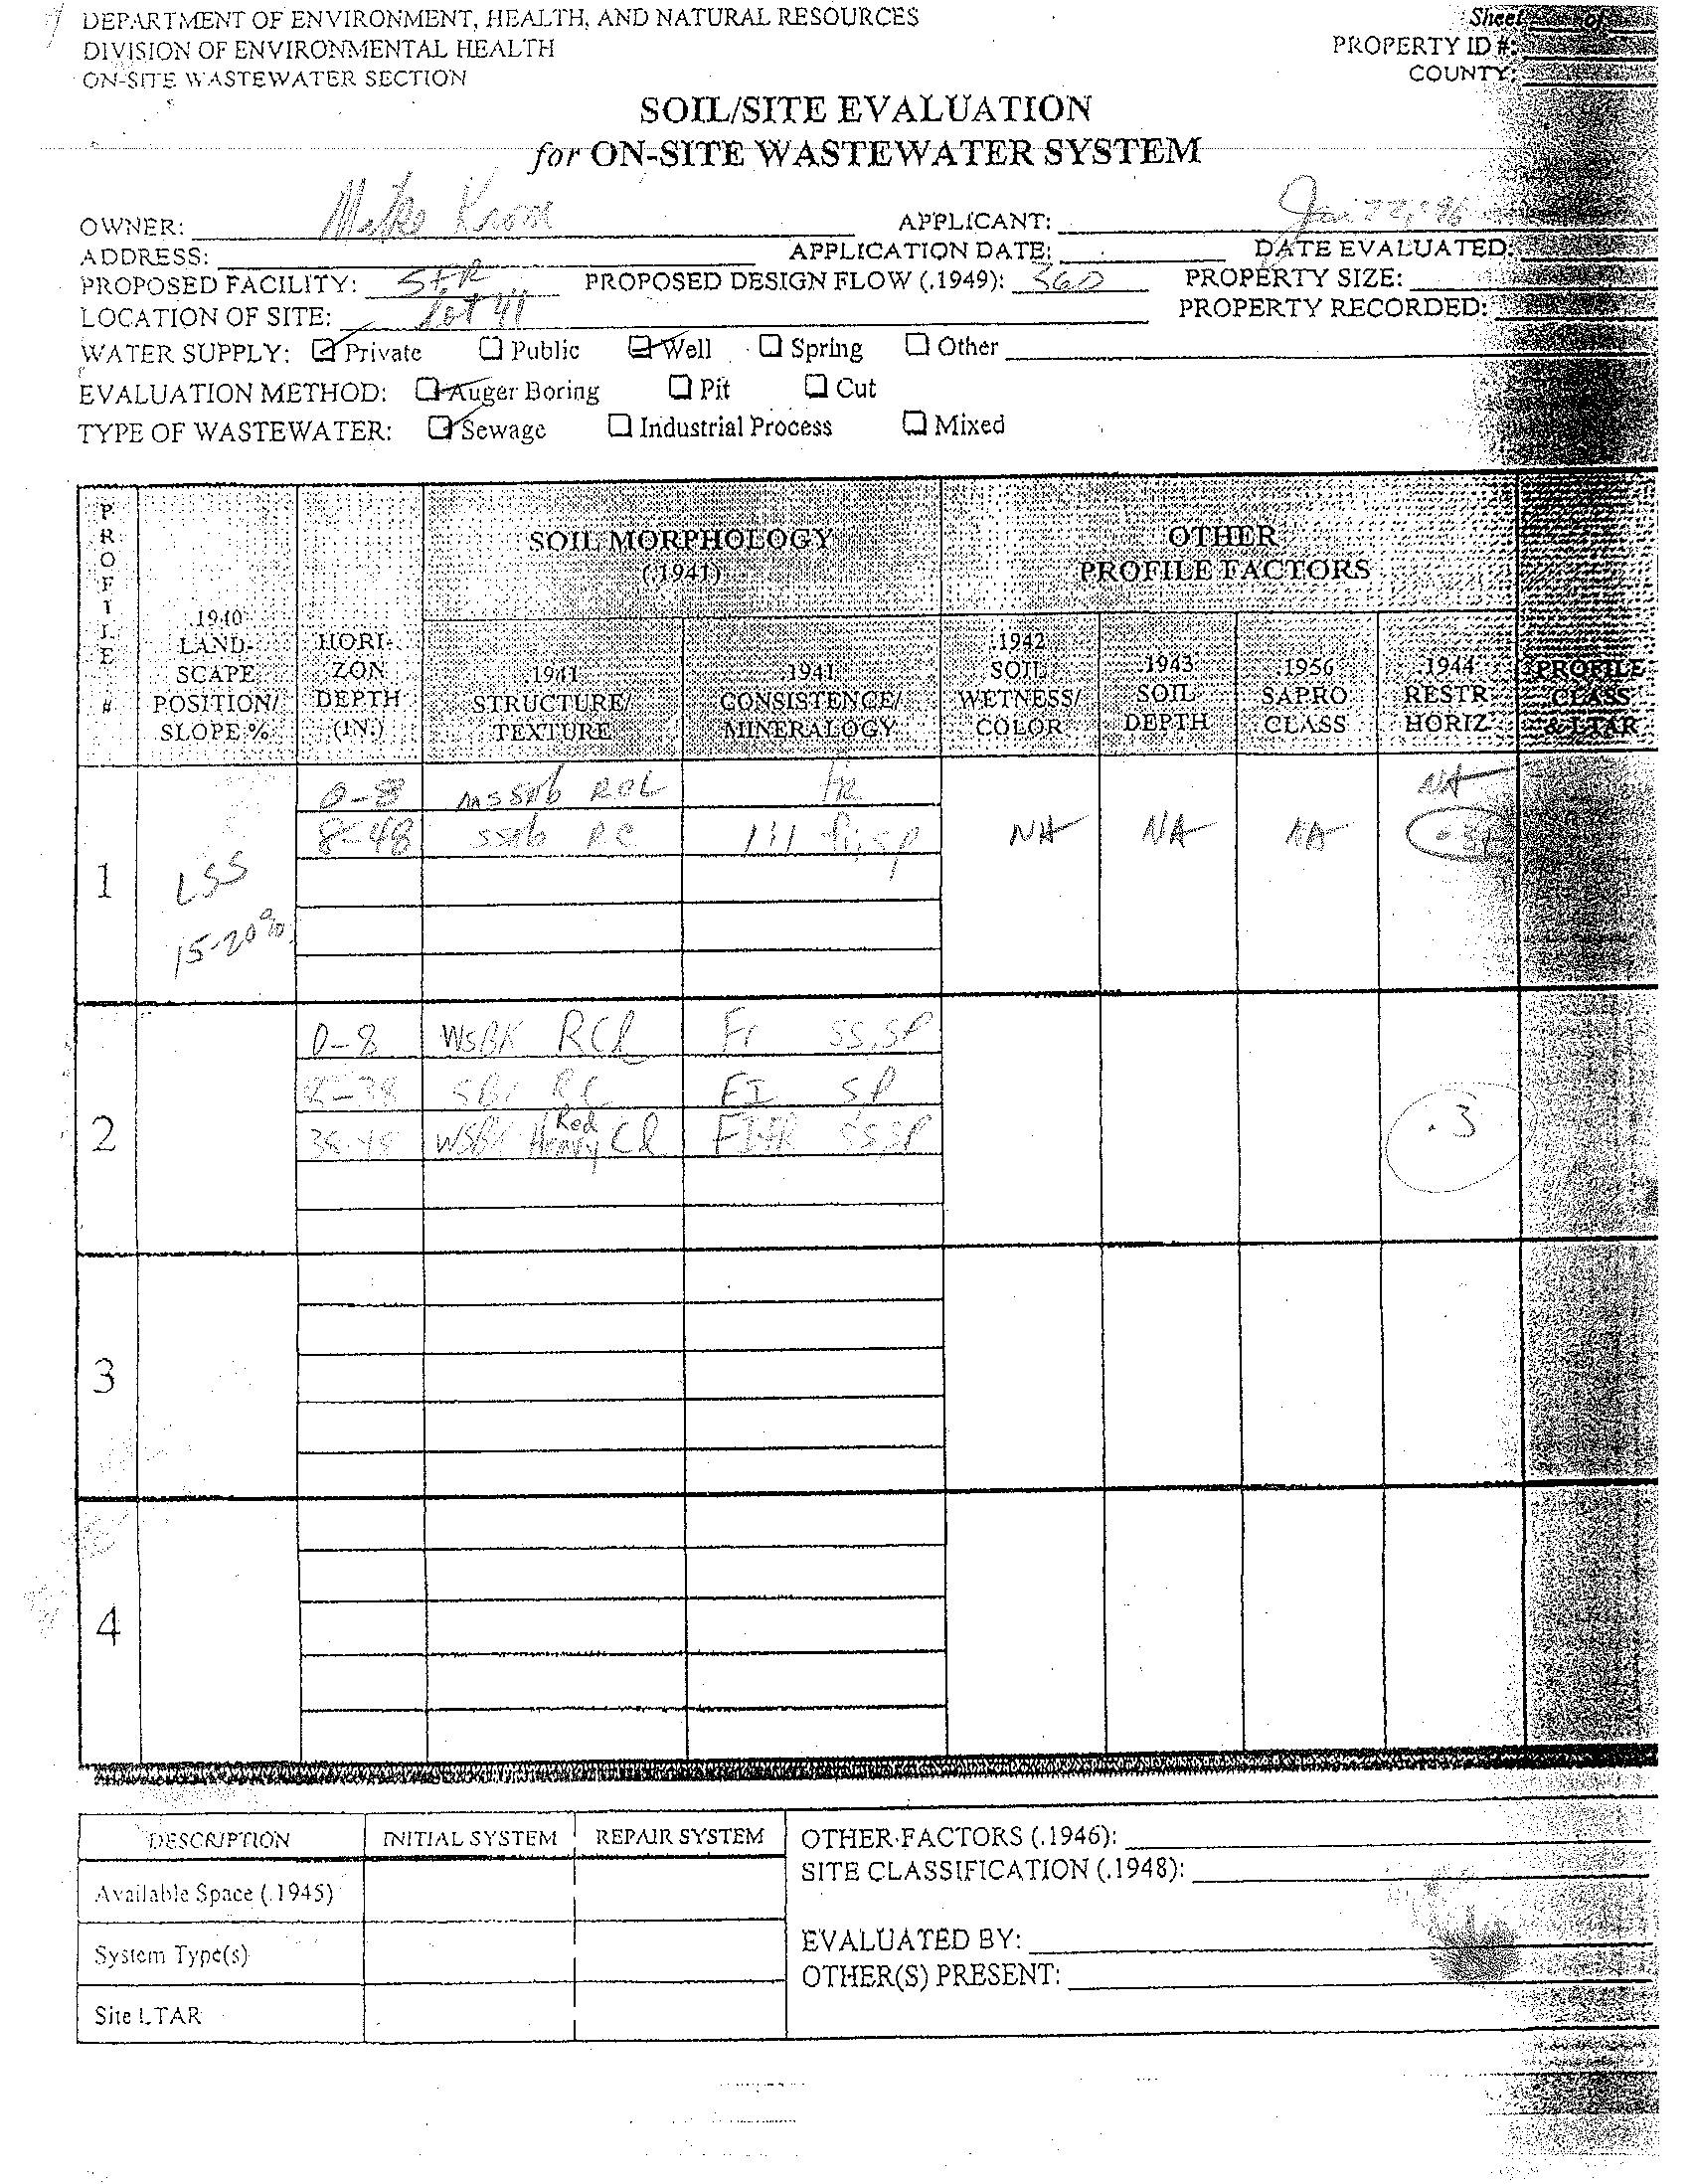 DEPARTMENT OF ENVIRONMENT, HEALTH, AND NATURAL RESOURCES
DIVISION OF ENVIRONMENTAL HEALTH
ON-SITE WASTEWATER SECTION
Sheet of
PROPERTY ID #:
COUNTY:
SOIL/SITE EVALUATION
for ON-SITE WASTEWATER SYSTEM
OWNER: Mike APPLICANT:
ADDRESS: APPLICATION DATE: DATE EVALUATED:
PROPOSED FACILITY: SFR PROPOSED DESIGN FLOW (.1949): 360 PROPERTY SIZE:
LOCATION OF SITE: Lot 41 PROPERTY RECORDED:
WATER SUPPLY: Private Public Well Spring Other
EVALUATION METHOD: Auger Boring Pit Cut
TYPE OF WASTEWATER: Sewage Industrial Process Mixed
PROFILE #
.1940 LAND-SCAPE POSITION/ SLOPE %
HORI-ZON DEPTH (IN.)
SOIL MORPHOLOGY
(.1941)
.1941 STRUCTURE/ TEXTURE
.1941 CONSISTENCE/ MINERALOGY
OTHER
PROFILE FACTORS
.1942 SOIL WETNESS/ COLOR
.1943 SOIL DEPTH
.1956 SAPRO CLASS
.1944 RESTR HORIZ
PROFILE CLASS & LTAR
1
LSS
15-20%
0-8 RCL fr NA
8-48 RC 1:1 fi, SP NA NA NA
2
0-8 WSBK RCl Fr SS, SP
SBK RC FI SP
WSBK Red Heavy Cl SSSP
.3
3
4
DESCRIPTION INITIAL SYSTEM REPAIR SYSTEM
Available Space (.1945)
System Type(s)
Site LTAR
OTHER FACTORS (.1946):
SITE CLASSIFICATION (.1948):
EVALUATED BY:
OTHER(S) PRESENT: